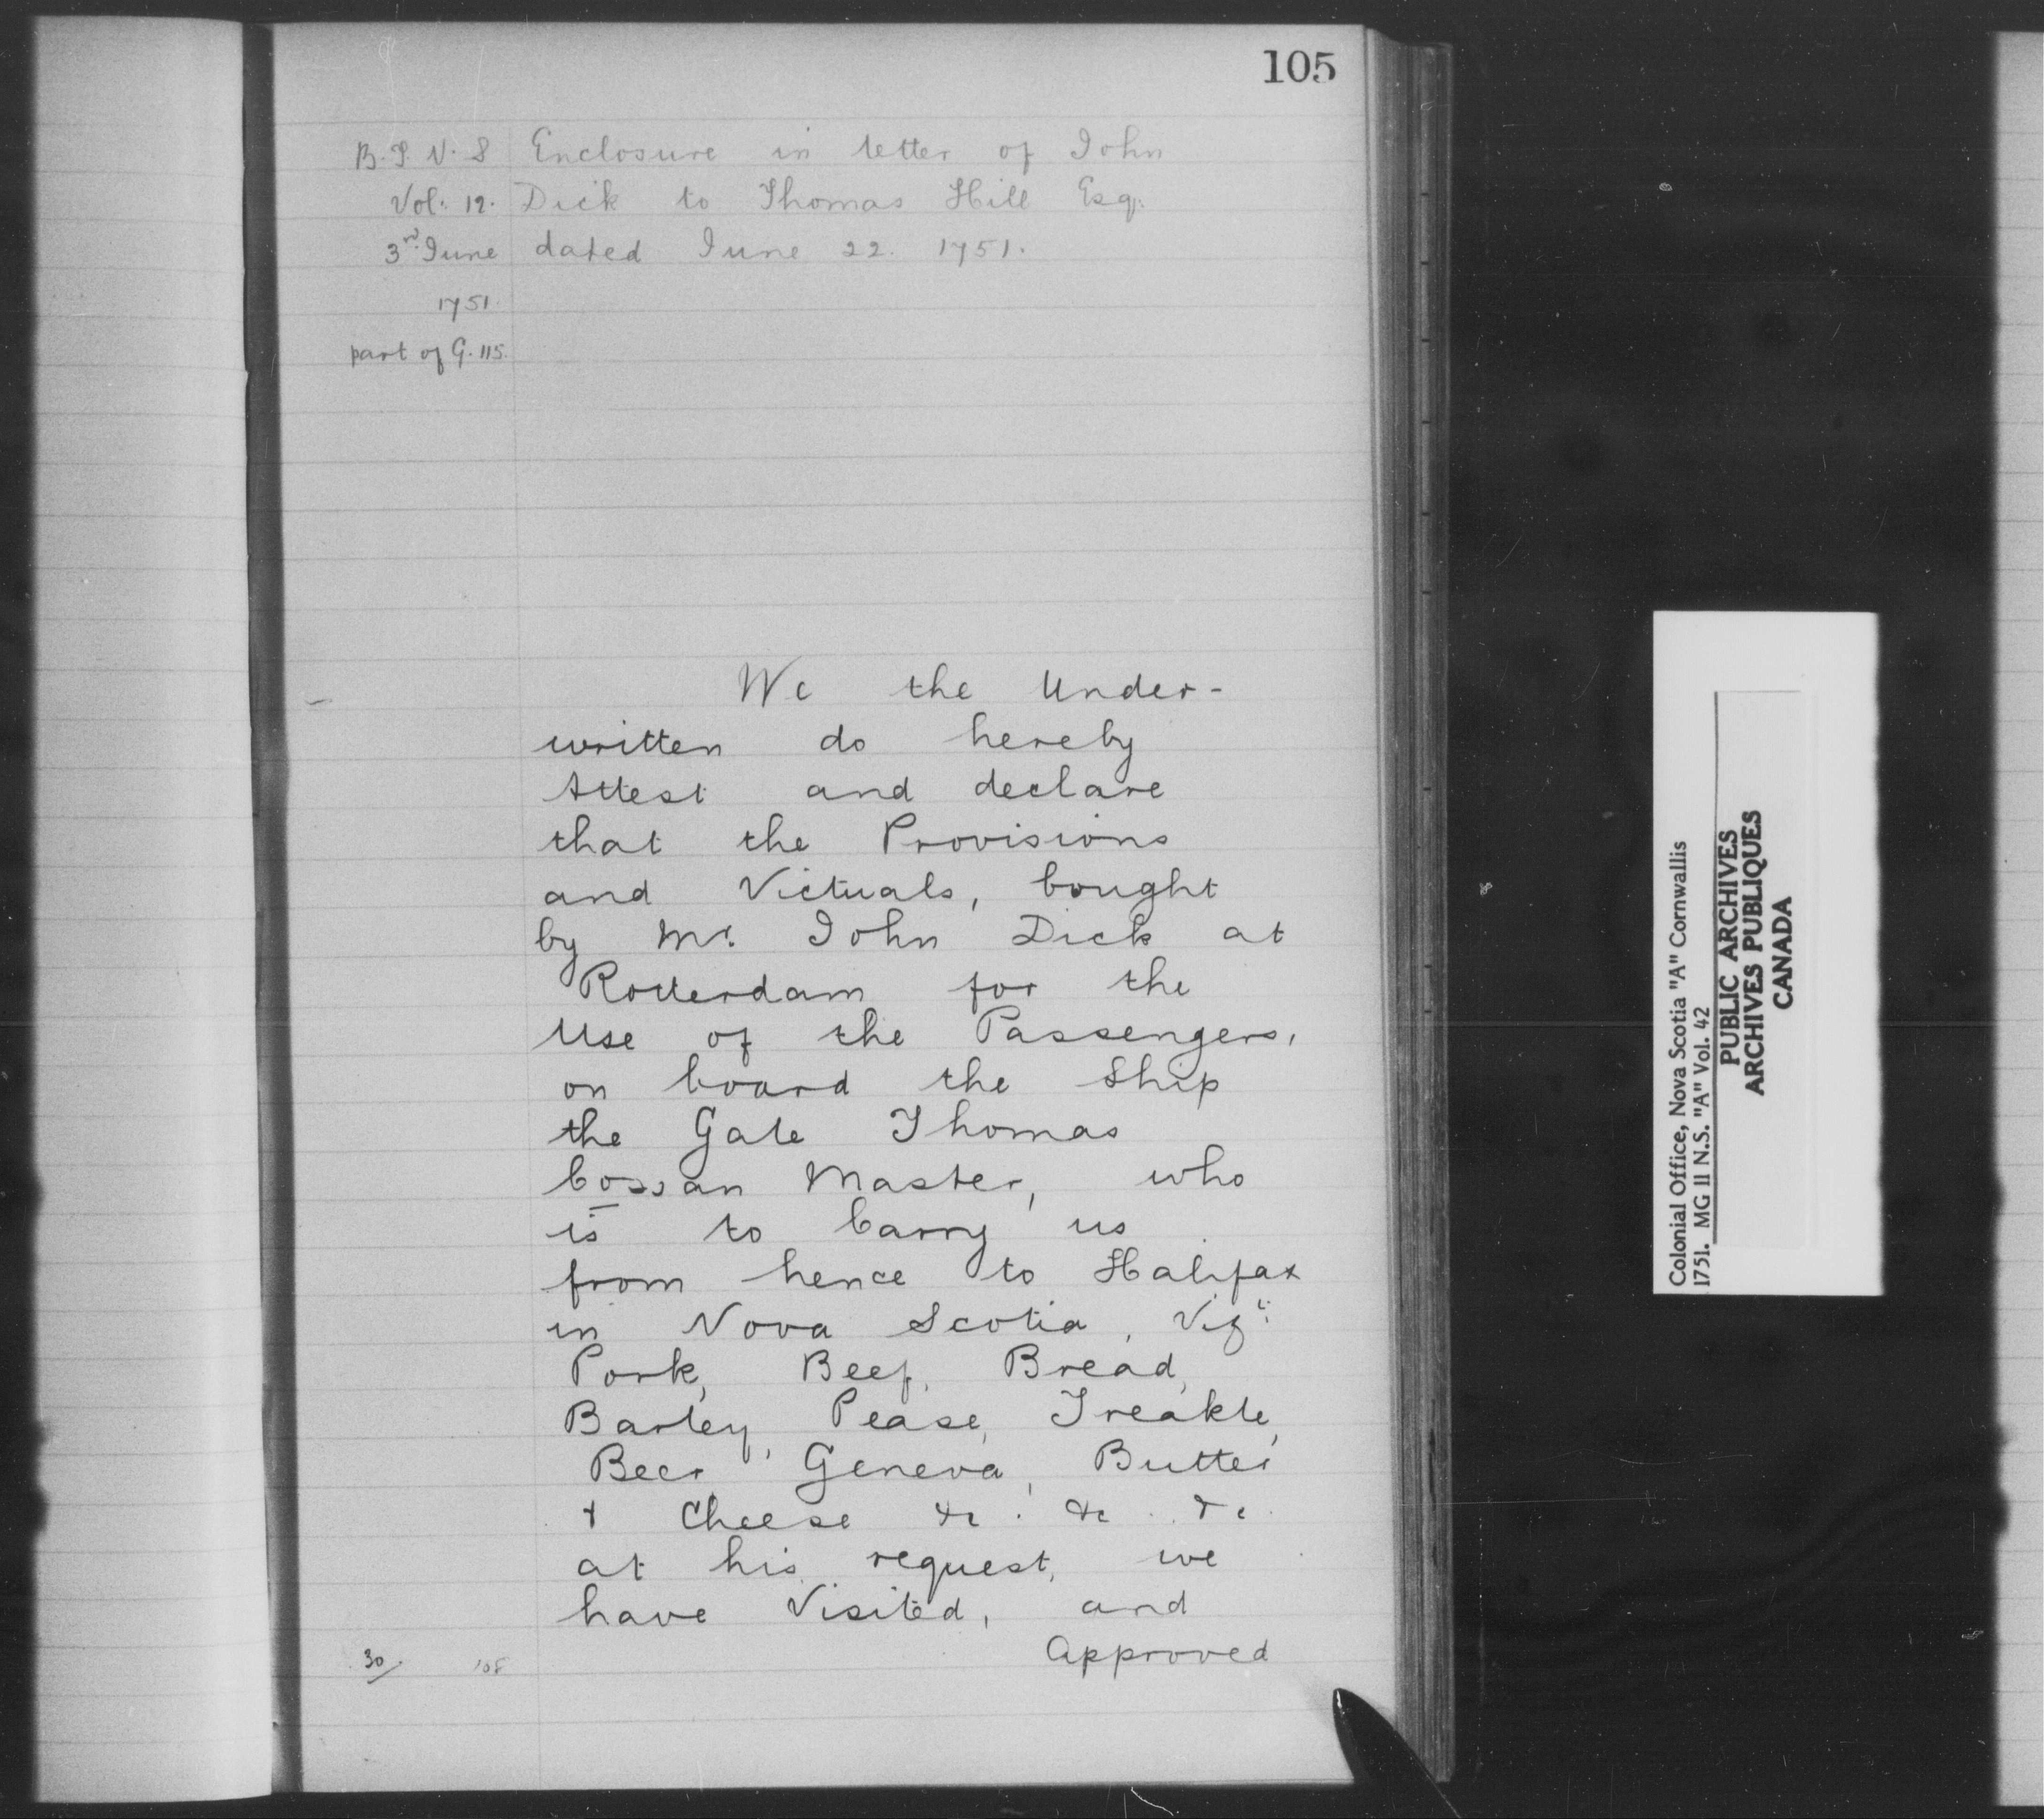 105
B. T. N. S
Vol. 12.
3rd June
1751.
part of G. 115.
Enclosure in letter of John
Dick to Thomas Hill Esq.
dated June 22. 1751.
We the Under-
written do hereby
Attest and declare
that the Provisions
and Victuals, bought
by Mr. John Dick at
Rotterdam for the
Use of the Passengers,
on board the Ship
the Gale Thomas
Cossan Master, who
is to Carry us
from hence to Halifax
in Nova Scotia, Vizt:
Pork, Beef, Bread,
Barley, Pease, Treakle,
Beer, Geneva, Butter
& Cheese &c. &c. &c
at his request, we
have Visited, and
Approved
30/. 108
Colonial Office, Nova Scotia "A" Cornwallis
1751. MG 11 N.S. "A" Vol. 42
PUBLIC ARCHIVES
ARCHIVES PUBLIQUES
CANADA